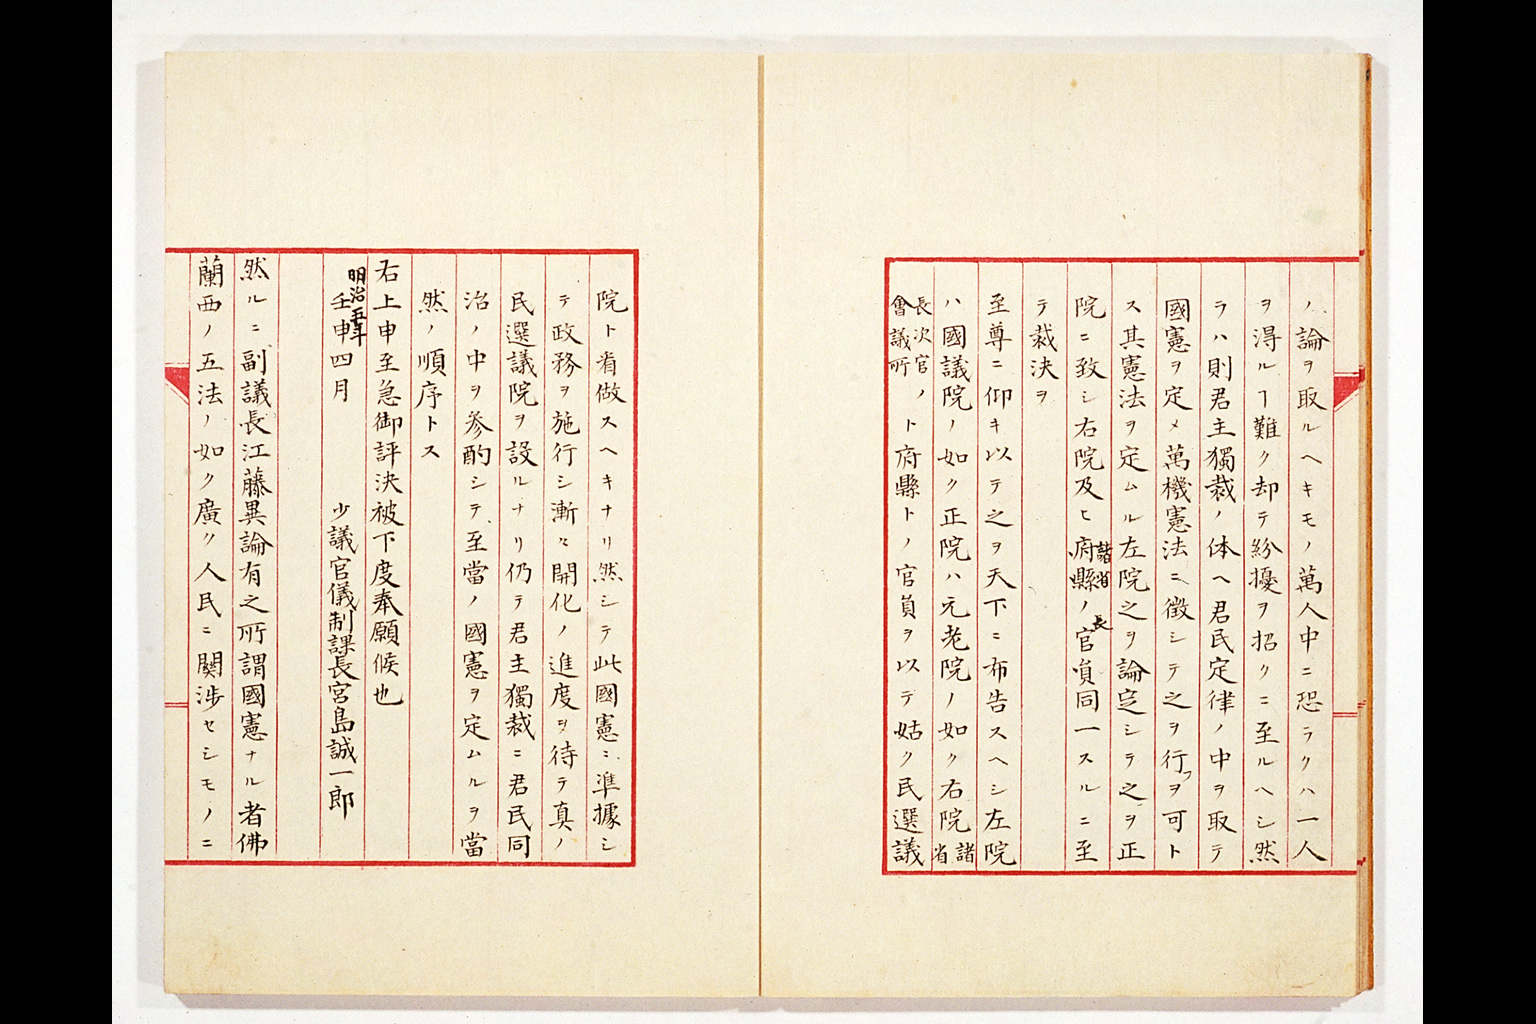 ノ論ヲ取ルヘキモノ萬人中ニ恐ラクハ一人
ヲ得ルヿ難ク却テ紛擾ヲ招クニ至ルヘシ然
ラハ則君主獨裁ノ体ヘ君民定律ノ中ヲ取テ
國憲ヲ定メ萬機憲法ニ徴シテ之ヲ行フヲ可ト
ス其憲法ヲ定ムル左院之ヲ論定シテ之ヲ正
院ニ致シ右院及ヒ府縣ノ官員同一スルニ至
諸省
長
テ裁決ヲ
至尊ニ仰キ以テ之ヲ天下ニ布告スヘシ左院
ハ國議院ノ如ク正院ハ元老院ノ如ク右院諸省
長次官ノ
會議所
ト府縣トノ官員ヲ以テ姑ク民選議
院ト看做スヘキナリ然シテ此國憲ニ準據シ
テ政務ヲ施行シ漸々開化ノ進度ヲ待テ真ノ
民選議院ヲ設ルナリ仍テ君主獨裁ニ君民同
治ノ中ヲ参酌シテ至當ノ國憲ヲ定ムルヲ當
然ノ順序トス
右上申至急御評決被下度奉願候也
明治五年
壬申四月 少議官儀制課長宮島誠一郎
然ルニ副議長江藤異論有之所謂國憲ナル者佛
蘭西ノ五法ノ如ク廣ク人民ニ関渉セシモノニ